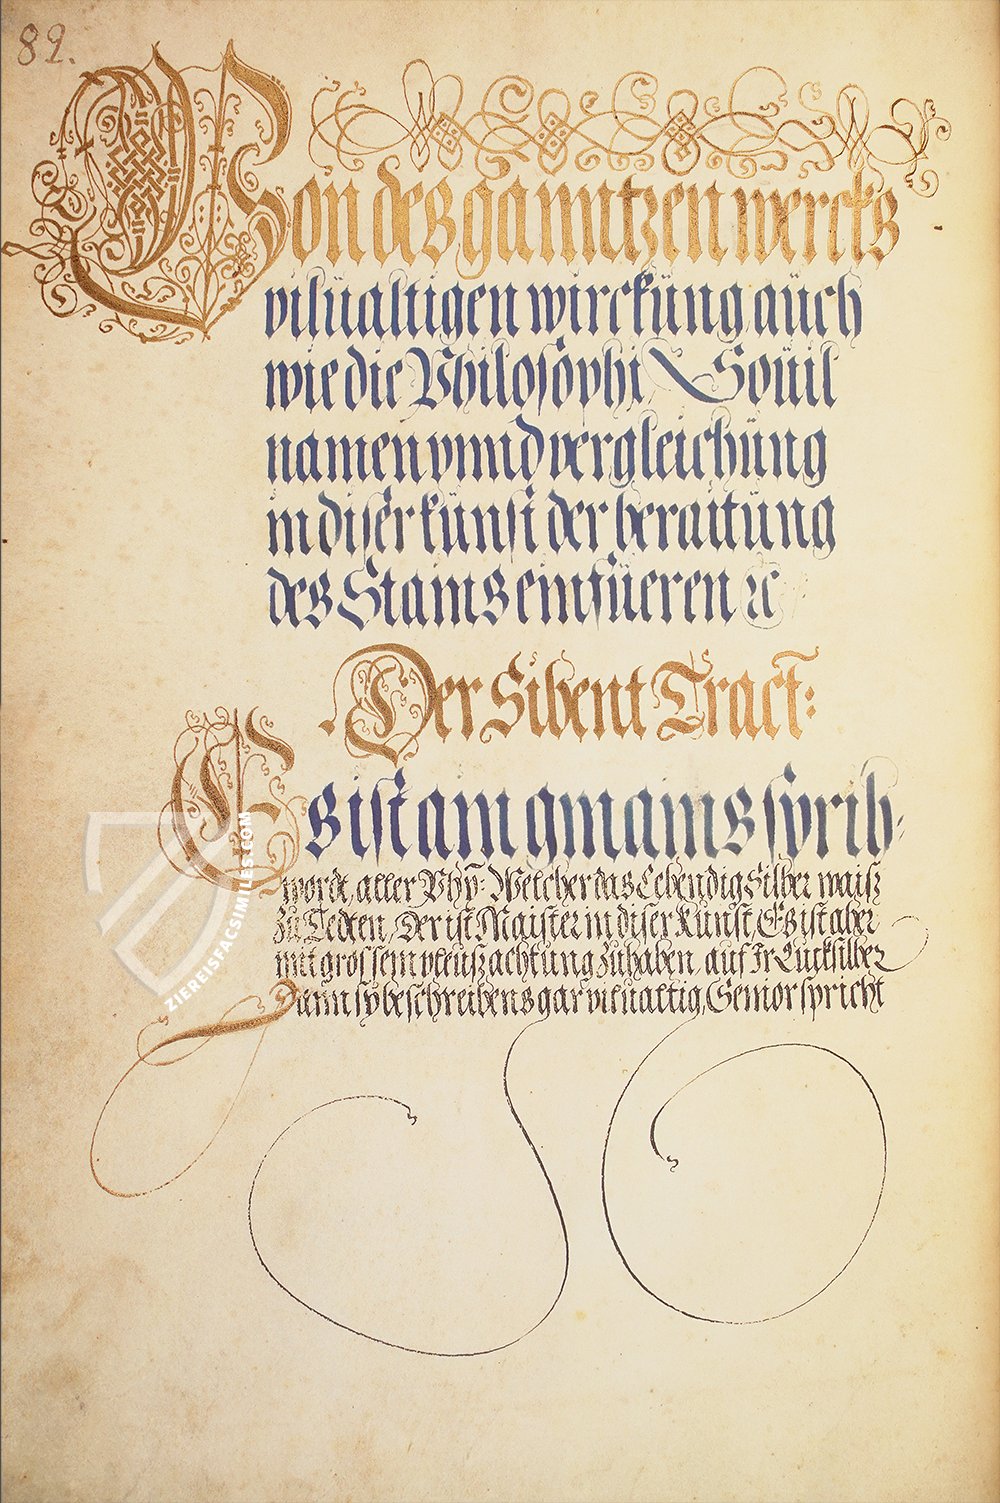 82.
Von des ganntzen wercks
viluältigen wirckŭng aŭch
wie die Philosophi Souil
namen vnnd vergleichŭng
in diser kŭnst der beraitŭng
des Stains einfüeren ꝛc
Der Sibent Tract:
Es ist am gmains sprih-
wordt, aller Phÿ: Welcher das Lebendig Silber waisz
Zŭ Tedten, Der ist Maister in diser Kŭnst, Es ist aber
mit grossem vleŭsz achtŭng zŭhaben, auf Ir Quecksilber
Dann sy beschreibens gar viluältig, Senior spricht
ZIEREISFACSIMILES.COM